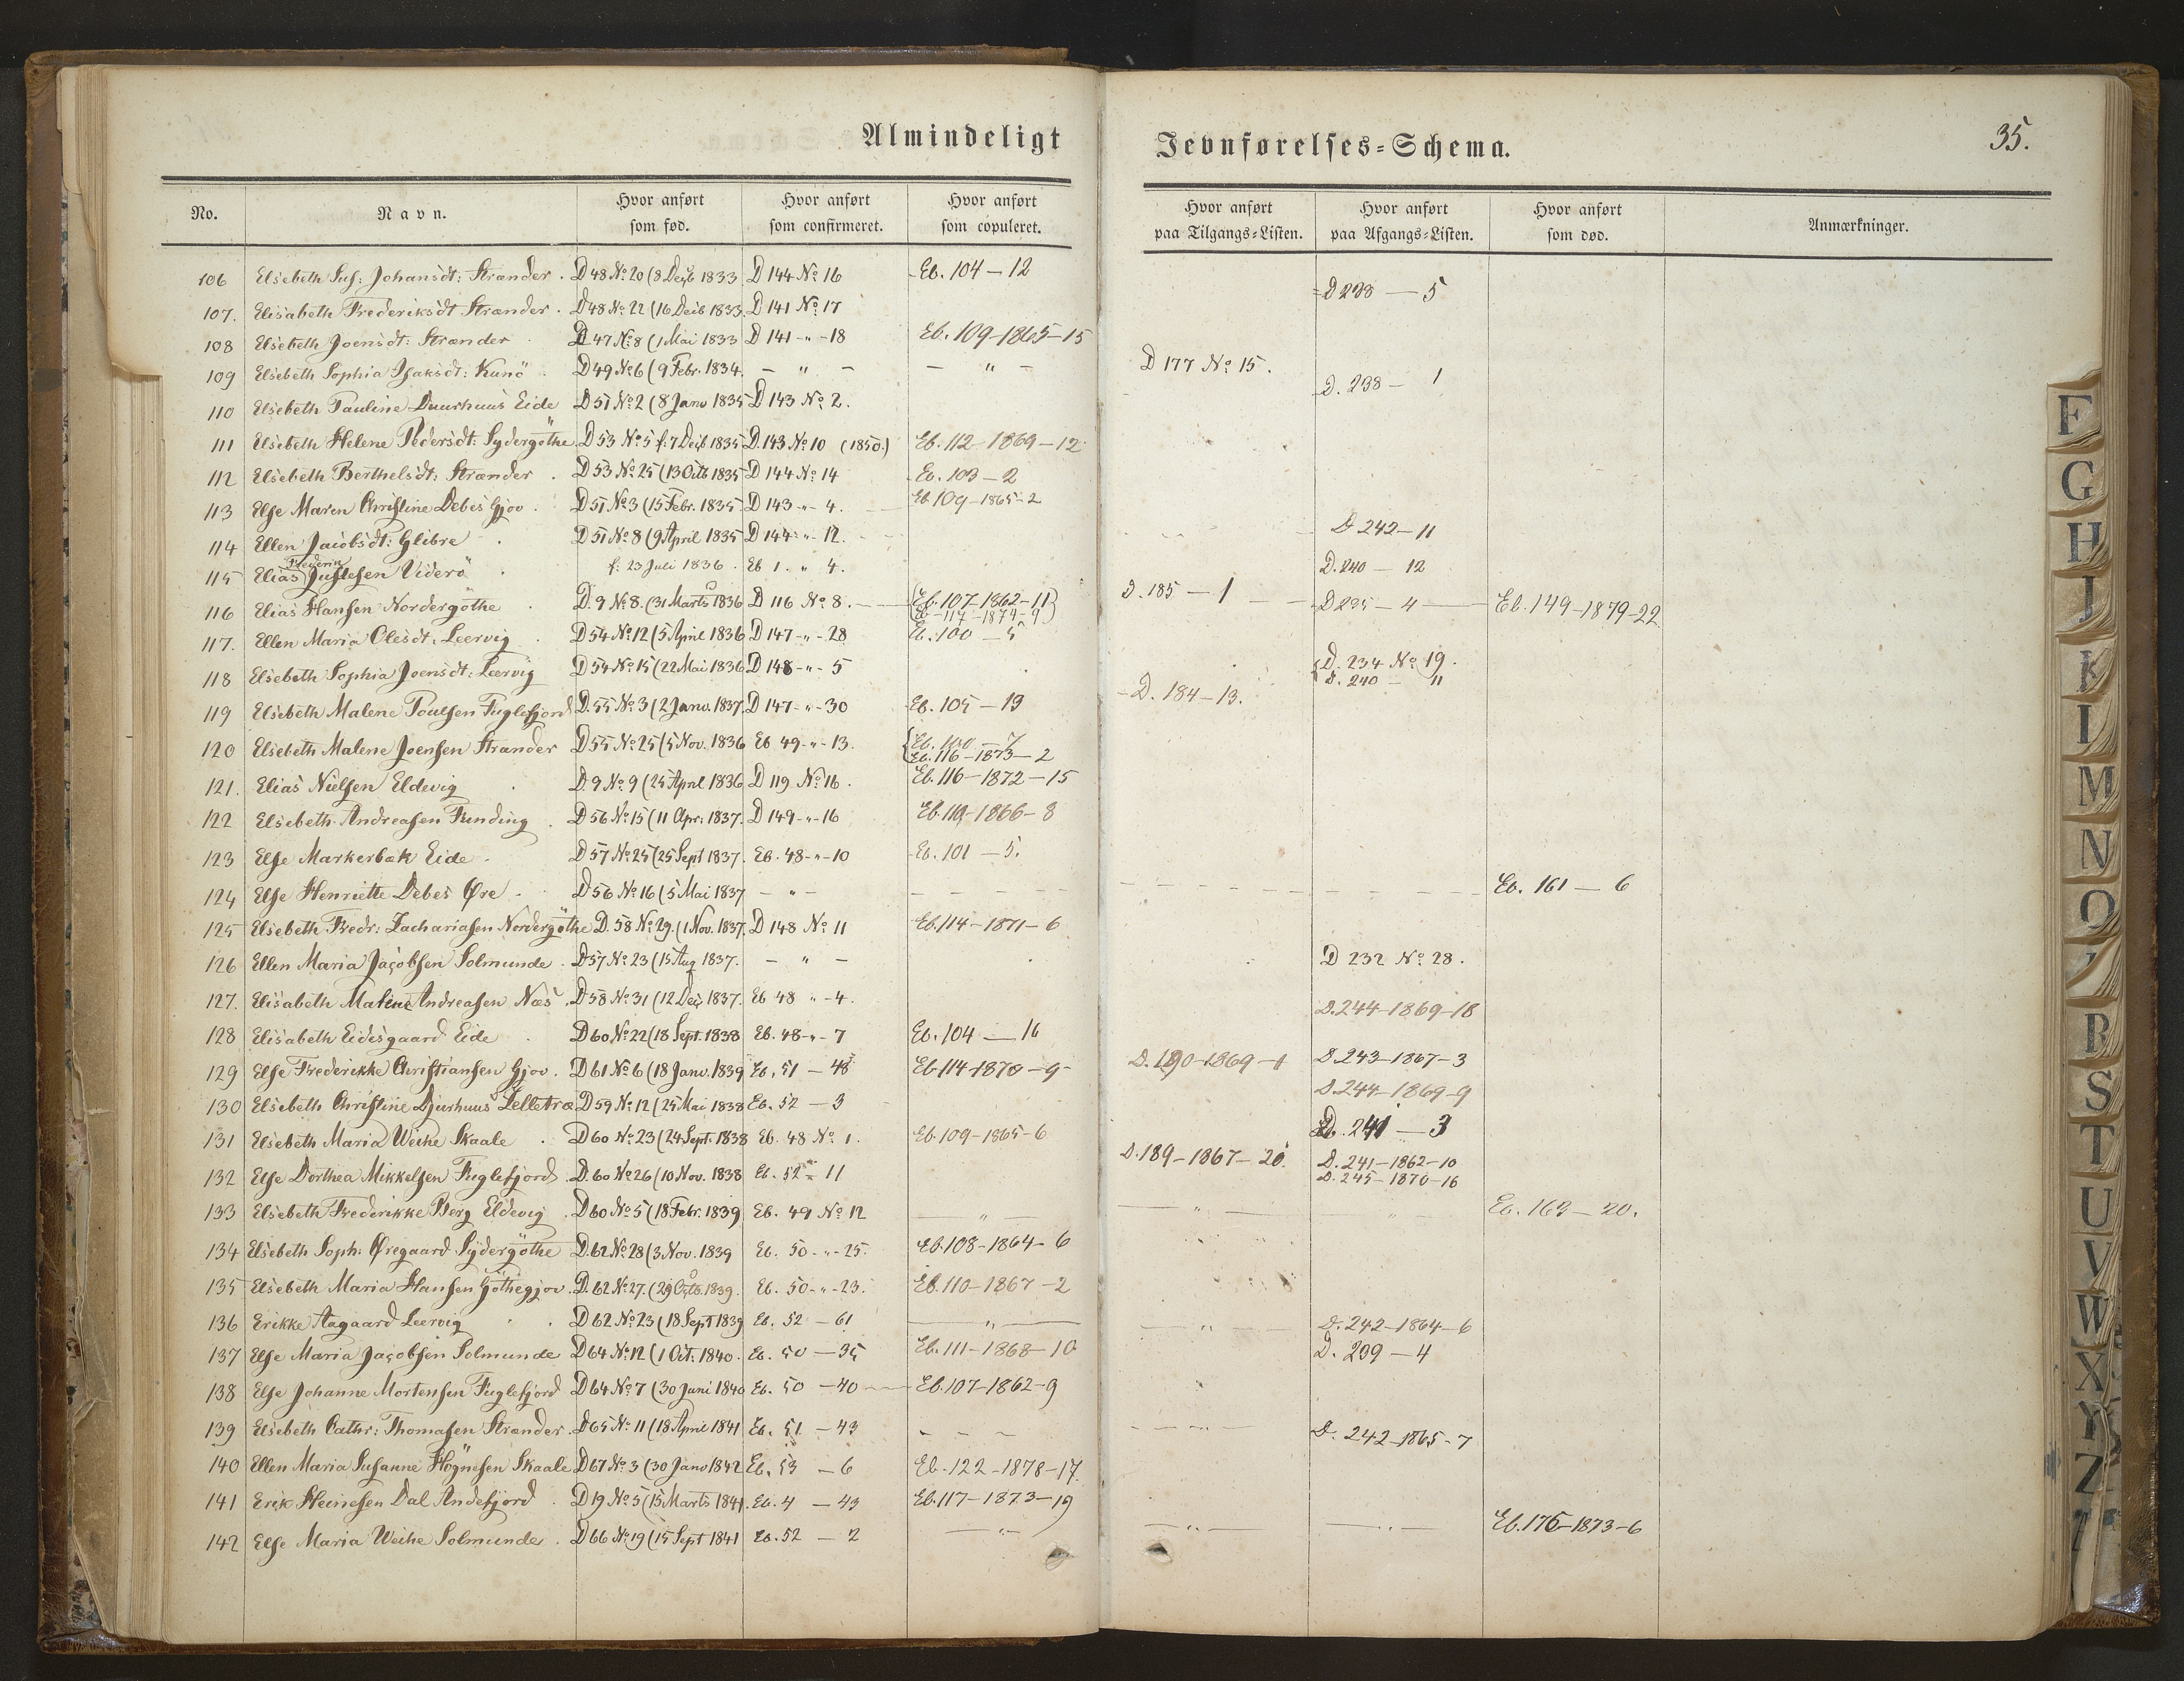 Almindeligt Jevnførelses-Schema. 35.
No. Navn. Hvor anført som fød. Hvor anført som confirmeret. Hvor anført som copuleret. Hvor anført paa Tilgangs-Listen. Hvor anført paa Afgangs-Listen. Hvor anført som død. Anmærkninger.
106 Elsebeth Sus: Johansdt: Strænder. D 48 No 20 (8 Decb 1833 D 144 No 16 Eb. 104 — 12 D 238 — 5
107. Elisabeth Frederiksdt Strænder. D 48 No 22 (16 Decb 1833. D 141 No 17
108 Elsebeth Joensdt: Strænder D 47 No 8 (1 Mai 1833 D 141 - " - 18 Eb. 109-1865-15
109 Elsebeth Sophia Isaksdt: Kunö D 49 No 6 (9 Febr. 1834. — " — — " — D 177 No 15. D. 238 — 1
110 Elsebeth Pauline Duurhuus Eide D 51 No 2 (8 Janv 1835 D 143 No 2.
111 Elsebeth Helene Pedersdt: Sydergöthe. D 53 No 5 f. 7 Decb 1835 D. 143 No 10 (1850.) Eb. 112-1869-12
112 Elsebeth Berthelsdt: Strænder D 53 No 25 (13 Octb 1835 D 144 No 14 Eb. 103 — 2
113 Else Maren Christine Debes Gjov. D 51 No 3 (15 Febr. 1835 D 143 - " - 4. Eb 109-1865-2
114 Ellen Jacobsdt: Glibre D 51 No 8 (9 April 1835 D 144 - " - 12. D 242-11
115 Elias Frederik Justesen Viderö f. 23 Juli 1836. Eb 1. " 4. D. 240 — 12
116 Elias Hansen Nordergöthe D. 9 No 8. (31 Marts 1836 D 116 No 8. (Eb. 107-1862-11) D. 185 — 1 D 235 — 4 Eb. 149-1879-22
(Eb-117-1874-9)
117. Ellen Maria Olesdt: Leervig D 54 No 12 (5 April 1836 D 147 - " - 28 Eb. 100 — 5
118 Elsebeth Sophia Joensdt: Leervig D 54 No 15 (22 Mai 1836 D 148 - " - 5 D. 234 No 19.
D. 240 — 11
119 Elsebeth Malene Poulsen Fuglefjord D. 55 No 3 (2 Janv. 1837. D 147 - " - 30 Eb. 105 — 13 D. 184-13.
120 Elsebeth Malene Joensen Strænder D 55 No 25 (5 Nov. 1836 Eb 49 - " - 13. Eb. 100 — 7
Eb. 116-1873-2
121. Elias Nielsen Eldevig D. 9 No 9 (25 April 1836 D 119 No 16. Eb. 116-1872-15
122 Elsebeth Andreasen Funding D 56 No 15 (11 Apr: 1837. D 149 - " - 16 Eb. 110-1866-8
123 Else Markerbæk Eide. D 57 No 25 (25 Sept 1837. Eb. 48 - " - 10 Eb. 101 — 5.
124 Else Henriette Debes Øre. D 56 No 16 (5 Mai 1837 — " — Eb. 161 — 6
125 Elsebeth Fredr: Zachariasen Nordergöthe D. 58 No 29. (1 Nov. 1837. D 148 No 11 Eb. 114-1871-6
126 Ellen Maria Jacobsen Solmunde. D 57 No 23 (15 Aug 1837. — " — D 232 No 28.
127. Elisabeth Malene Andreasen Næs. D 58 No 31 (12 Dec 1837. Eb 48 " - 4. D. 244-1869-18
128 Elisabeth Eidesgaard Eide D 60 No 22 (18 Sept. 1838 Eb. 48 - " - 7 Eb. 104 — 16
129 Else Frederikke Christiansen Gjov. D 61 No 6 (18 Janv. 1839 Eb. 51 — 48 Eb 114-1870-9 D. 190-1869-1 D. 243-1867-3
D. 244-1869-9
130 Elsebeth Christine Djurhuus Zelletræ D 59 No 12 (25 Mai 1838 Eb. 52 — 3
131 Elsebeth Maria Weihe Skaale D 60 No 23 (24 Sept. 1838 Eb. 48 No 1. Eb. 109-1865-6 D. 241 — 3
132 Else Dorthea Mikkelsen Fuglefjord. D. 60 No 26 (10 Nov. 1838 Eb. 52 - 11 D. 189-1867-20. D. 241-1862-10
D. 245-1870-16
133 Elsebeth Frederikke Berg Eldevig. D 60 No 5 (18 Febr. 1839 Eb. 49 No 12 — " — — " — " Eb. 163 — 20.
134 Elsebeth Soph: Øregaard Sydergöthe D. 62 No 28 (3 Nov. 1839 Eb. 50 - " - 25. Eb. 108-1864-6
135 Elsebeth Maria Hansen Göthegjov. D. 62 No 27. (29 Octb. 1839. Eb. 50 - " - 23. Eb. 110-1867-2
136 Erikke Aagaard Leervig D 62 No 23 (18 Sept 1839 Eb. 52 — 61 — " — — " — D. 242-1864-6
137 Else Maria Jacobsen Solmunde D 64 No 12 (1 Oct: 1840. Eb. 50 — 35 Eb. 111-1868-10 D. 239 — 4
138 Else Johanne Mortensen Fuglefjord D 64 No 7 (30 Juni 1840 Eb. 50 — 40 Eb. 107-1862-9
139 Elsebeth Cathr: Thomasen Strænder. D 65 No 11 (18 April 1841 Eb. 51 — 43 — " — D. 242-1865-7
140 Ellen Maria Susanne Högnesen Skaale D 67 No 3 (30 Janv 1842 Eb. 53 — 6 Eb. 122-1878-17.
141 Erik Heinesen Dal Andefjord D 19 No 5 (15 Marts 1841. Eb. 4 — 43 Eb. 117-1873-19
142 Else Maria Weihe Solmunde. D 66 No 19 (15 Sept 1841 Eb. 52 — 2 — " — — " — — " — Eb. 176-1873-6
F
G
H
J
K
I
M
N
O
R
S
T
U
V
W
X
Y
Z